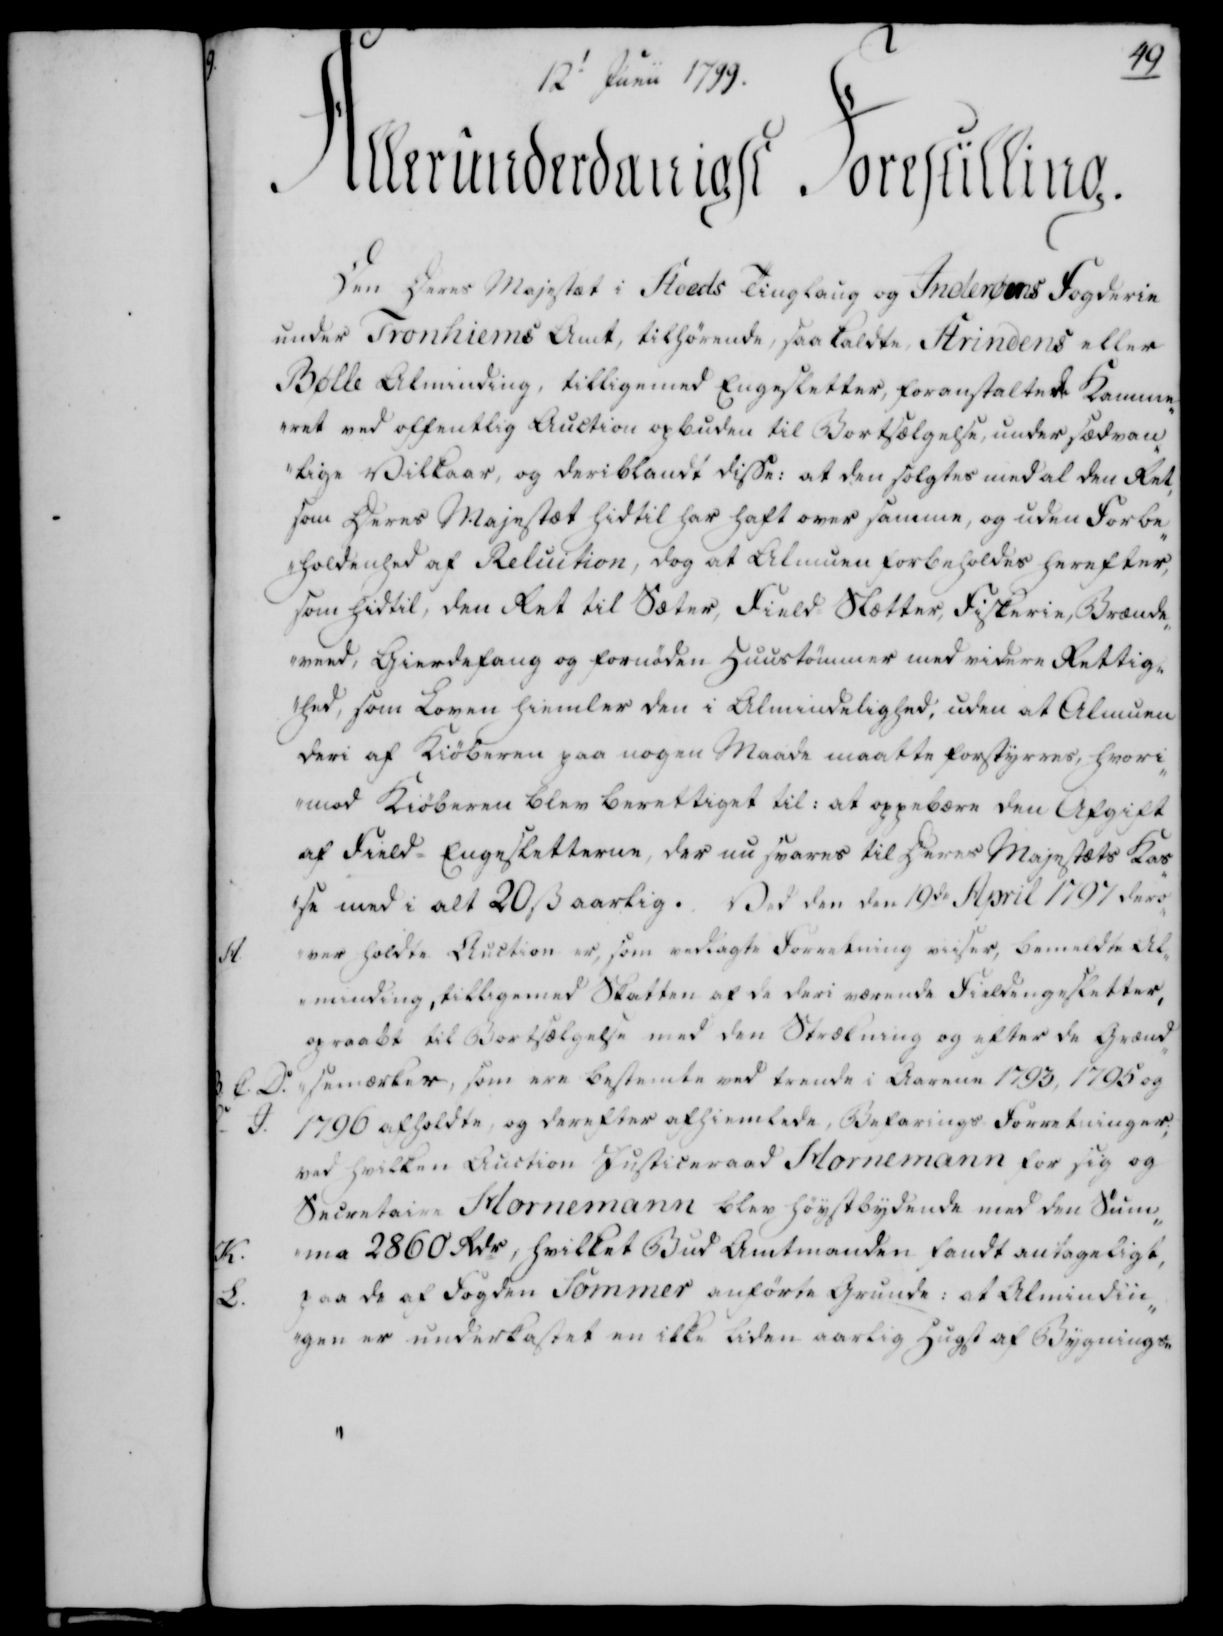 49
12t Junii 1799.
Allerunderdanigst Forestilling.
Den Deres Majestæt i Stoeds Tinglaug og Inderøens Fogderie
under Tronhiems Amt, tilhørende, saakaldte, Strindens eller
Bølle Alminding, tilligemed Engesletter, foranstaltede Kamme„
„ret ved offentlig Auction opbuden til Bortsælgelse, under sædvan„
„lige Vilkaar, og deriblandt disse: at den solgtes med al den Ret,
som Deres Majestæt hidtil har haft over samme, og uden Forbe„
„holdenhed af Reluition, dog at Almuen forbeholdes herefter,
som hidtil, den Ret til Sæter, Field-Slætter, Fiskerie, Brænde„
„veed, Gierdefang og fornøden Huustømmer med videre Rettig„
„hed, som Loven hiemler den i Almindelighed, uden at Almuen
deri af Kiøberen paa nogen Maade maatte forstyrres, hvori„
„mod Kiøberen blev berettiget til: at oppebære den Afgift
af Field-Engesletterne, der nu svares til Deres Majestæts Kas„
„se med i alt 20 ß aarlig. Ved den den 19de April 1797 dero„
A. „ver holdte Auction er, som vedlagte Forretning viiser, bemeldte Al„
„minding, tilligemed Skatten af de deri værende Fieldengesletter,
opraabt til Bortsælgelse med den Strækning og efter de Grænd„
B. C. D. „semærker, som ere bestemte ved trende i Aarene 1793, 1795 og
J. 1796 afholdte, og derefter afhiemlede, Befarings Forretninger,
ved hvilken Auction Justiceraad Hornemann for sig og
Secretaire Hornemann blev høystbydende med den Sum„
K. „ma 2860 Rdr, hvilket Bud Amtmanden fandt antageligt,
L. paa de af Fogden Sommer anførte Grunde: at Almindin„
„gen er underkastet en ikke liden aarlig Hugst af Bygnings„